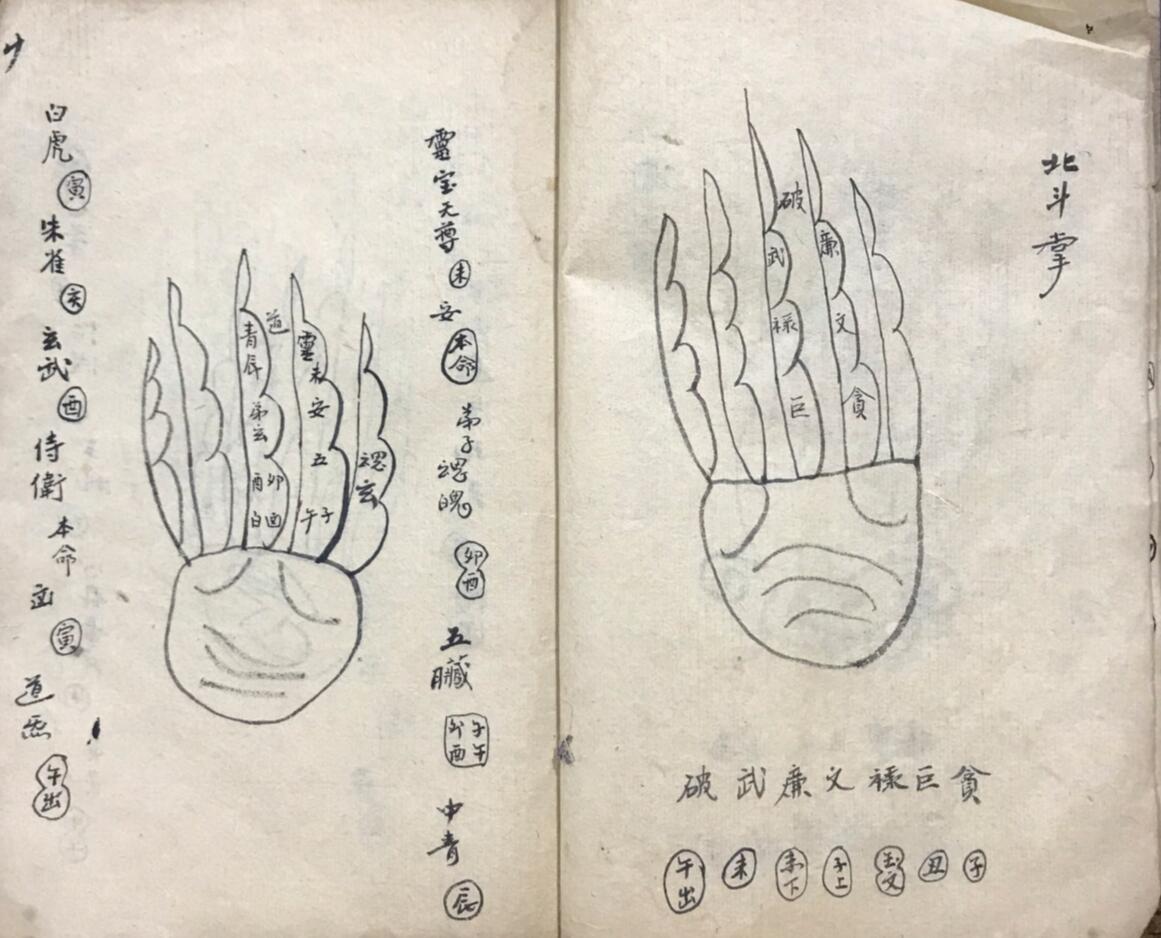 北斗掌
破
廉
武
文
祿
貪
巨
貪巨祿文廉武破
子
丑
子上
未下
未
午出
靈宝天尊
未
安
本命
弟子魂魄
卯酉
五臟
子午卯酉
中青
辰
道
青辰
靈
未
安
弟玄
五
魂
玄
酉卯
白酉
午子
白虎
寅
朱雀
亥
玄武
酉
侍衛
本命
寅
道炁
午出